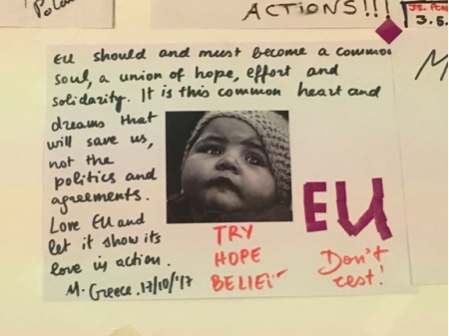 ACTIONS!!!
3.5.
EU should and must become a common
soul, a union of hope, effort and
solidarity. It is this common heart and
dreams that
will save us,
not the
politics and
agreements.
Love EU and
let it show its
love in action.
M. Greece, 17/10/'17
TRY
HOPE
BELIEV
EU
Don't
rest!